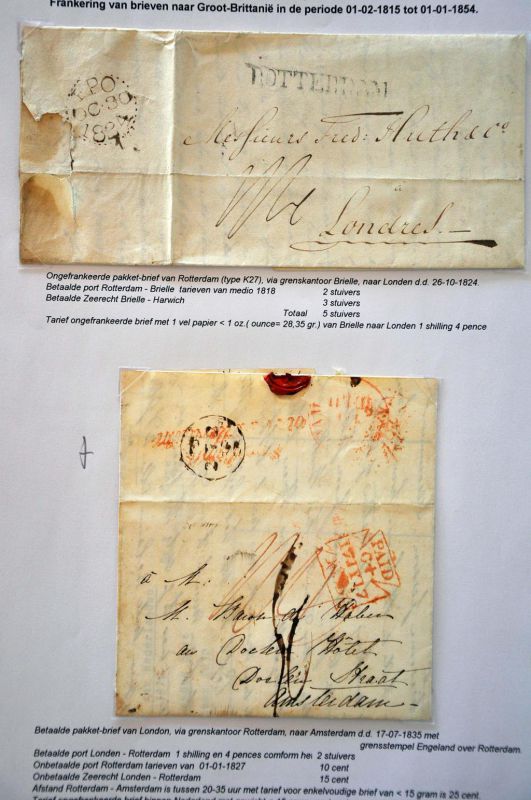 Frankering van brieven naar Groot-Brittanië in de periode 01-02-1815 tot 01-01-1854.
FPO
OC 30
1824
ROTTERDAM
Messieurs Fred: Huth & Co
à
Londres.
Ongefrankeerde pakket-brief van Rotterdam (type K27), via grenskantoor Brielle, naar Londen d.d. 26-10-1824.
Betaalde port Rotterdam - Brielle tarieven van medio 1818 2 stuivers
Betaalde Zeerecht Brielle - Harwich 3 stuivers
Totaal 5 stuivers
Tarief ongefrankeerde brief met 1 vel papier < 1 oz.( ounce= 28,35 gr.) van Brielle naar Londen 1 shilling 4 pence
PAID
à M.
M. Baron de
au Doelen Hôtel
Doelen Straat
Amsterdam
Betaalde pakket-brief van London, via grenskantoor Rotterdam, naar Amsterdam d.d. 17-07-1835 met
grensstempel Engeland over Rotterdam.
Betaalde port Londen - Rotterdam 1 shilling en 4 pences comform he 2 stuivers
Onbetaalde port Rotterdam tarieven van 01-01-1827 10 cent
Onbetaalde Zeerecht Londen - Rotterdam 15 cent
Afstand Rotterdam - Amsterdam is tussen 20-35 uur met tarief voor enkelvoudige brief van < 15 gram is 25 cent.